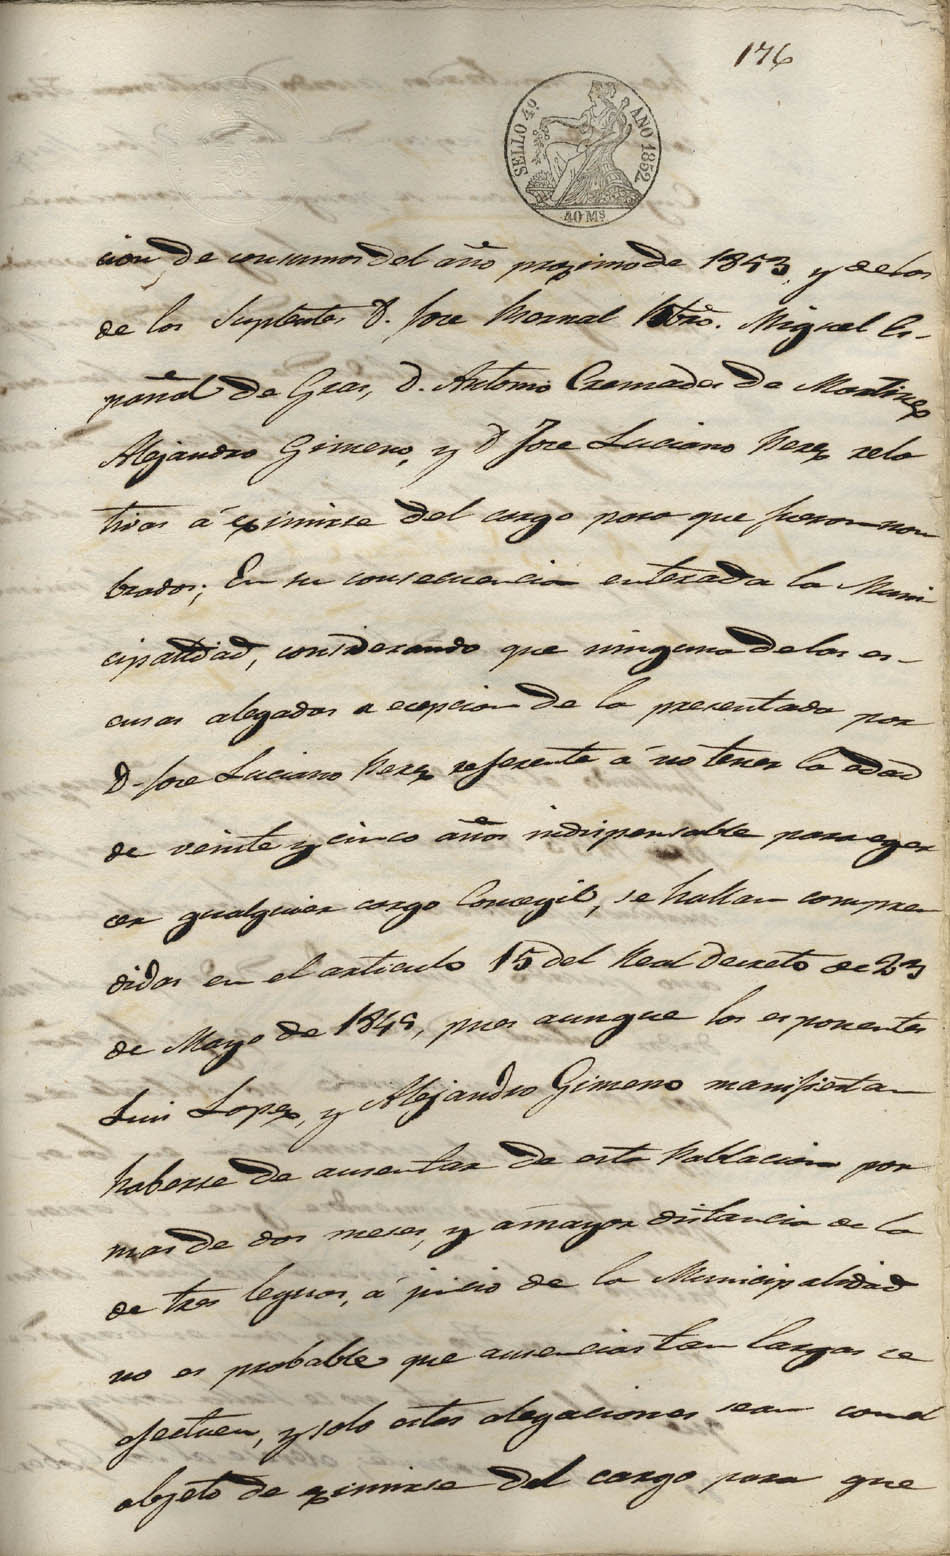 176
SELLO 4º AÑO 1852
40 Ms
cion, de consumos del año proximo de 1853, y de las
de los Suplentes D. Jose Bernal Miguel Es-
pañol de Gras, D. Antonio Cremades de Martinez
Alejandro Gimeno, y D Jose Luciano Perez rela
tivas á eximirse del cargo para que fueron nom
brados; En su consecuencia enterada la Muni
cipalidad, considerando que ninguna de las es-
cusas alegadas a ecepcion de la presentada por
D. Jose Luciano Perez referente á no tener la edad
de veinte y cinco años indispensable para eger
cer qualquier cargo Concegil, se hallan compren
didas en el articulo 15 del Real decreto de 23
de Mayo de 1845, pues aunque los esponentes
Luis Lopez, y Alejandro Gimeno manifiestan
haberse de ausentar de esta Poblacion por
mas de dos meses, y a mayor distancia de la
de tres leguas, á juicio de la Municipalidad
no es probable que ausencias tan largas se
efectuen, y solo estas alegaciones sean con el
objeto de eximirse del cargo para que